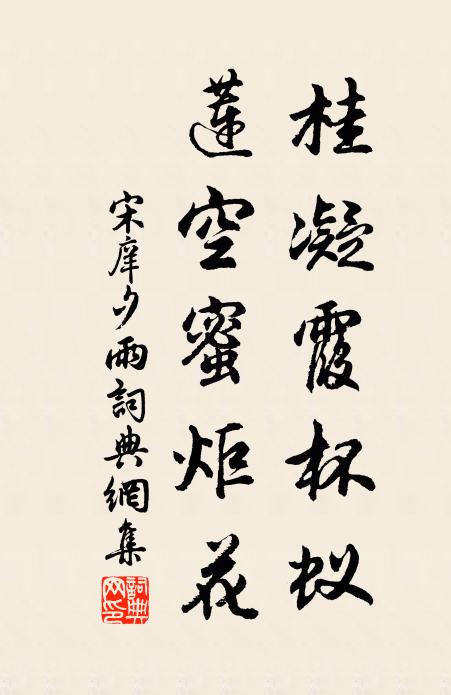 桂凝霞杯蚁
蓮空蜜炬花
宋庠夕雨詞典網集
詞典网印